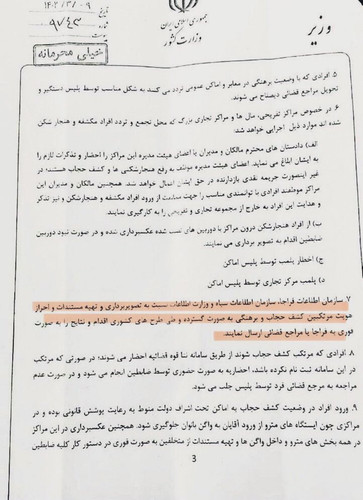 وزیر
جمهوری اسلامی ایران
وزارت کشور
۱۴۰۲/۳/۰۹
شماره ۹۷۴۳
پیوست
خیلی محرمانه
۵. افرادی که با وضعیت برهنگی در معابر و اماکن عمومی تردد می کنند به شکل مناسب توسط پلیس دستگیر و
تحویل مراجع قضائی ذیصلاح می شوند.
۶. در خصوص مراکز تفریحی، مال ها و مراکز تجاری بزرگ که محل تجمع و تردد افراد مکشفه و هنجار شکن
شده اند موارد ذیل اجرایی خواهد شد:
الف) دادستان های محترم مالکان و مدیران یا اعضای هیئت مدیره این مراکز را احضار و تذکرات لازم را
به ایشان ابلاغ می نماید. اعضای هیئت مدیره موظف به رفع هنجارشکنی ها و کشف حجاب هستند؛ در
غیر اینصورت جریمه نقدی بازدارنده در حق ایشان اعمال خواهد شد. همچنین مالکان و مدیران این
مراکز موظفند افرادی با توانمندی مناسب را جهت ممانعت از ورود افراد مکشفه و هنجارشکن و نیز تذکر
و هدایت این افراد به خارج از مجموعه تجاری و تفریحی را به کارگیری نمایند.
ب) از افراد هنجارشکن درون مراکز با دوربین های نصب شده عکسبرداری شده و در صورت نبود دوربین
ضابطین اقدام به تصویر برداری می نمایند.
ج) اخطار پلمب توسط پلیس اماکن
د) پلمب مرکز تجاری توسط پلیس اماکن
۷. سازمان اطلاعات فراجا، سازمان اطلاعات سپاه و وزارت اطلاعات نسبت به تصویربرداری و تهیه مستندات و احراز
هویت مرتکبین کشف حجاب و برهنگی به صورت گسترده و طی طرح های کشوری اقدام و نتایج را به صورت
فوری به فراجا یا مراجع قضائی ارسال نمایند.
۸. افرادی که مرتکب کشف حجاب شوند از طریق سامانه ثنا قوه قضائیه احضار می شوند؛ در صورتی که مرتکب
در این سامانه ثبت نام نکرده باشد، احضاریه به صورت حضوری توسط ضابطین انجام می شود و در صورت عدم
مراجعه به مرجع قضائی فرد توسط پلیس جلب می شود.
۹. ورود افراد در وضعیت کشف حجاب به اماکن تحت اشراف دولت منوط به رعایت پوشش قانونی بوده و در
مراکزی چون ایستگاه های مترو از ورود آقایان به واگن بانوان جلوگیری شود. همچنین عکسبرداری در این مراکز
در همه بخش های مترو و داخل واگن ها و تهیه مستندات از متخلفین به صورت فوری در دستور کار کلیه ضابطین
3